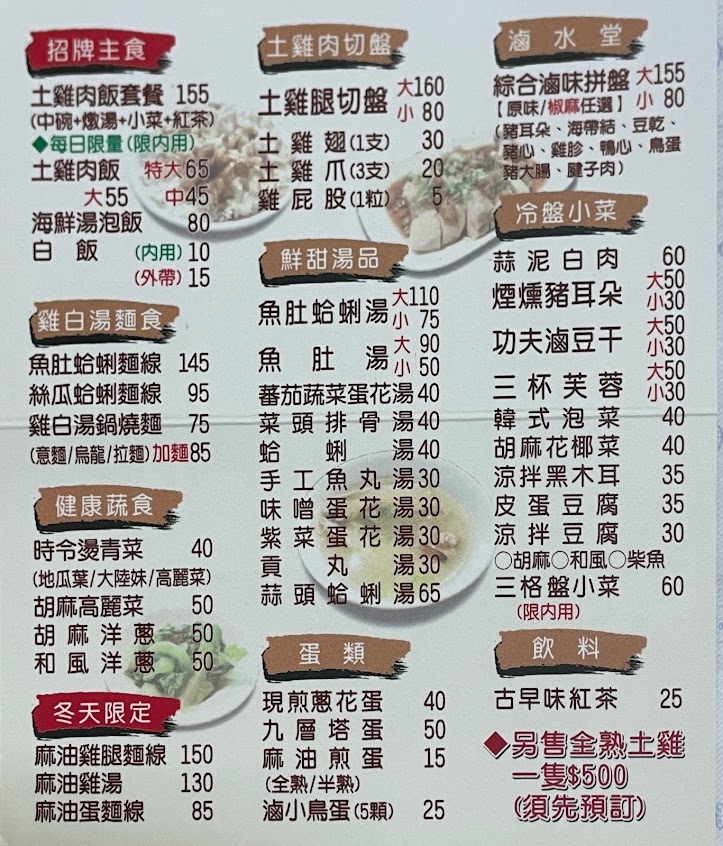 招牌主食
土雞肉飯套餐 155
(中碗+燉湯+小菜+紅茶)
◆每日限量(限內用)
土雞肉飯 特大65
大55 中45
海鮮湯泡飯 80
白飯 (內用)10
(外帶)15
雞白湯麵食
魚肚蛤蜊麵線 145
絲瓜蛤蜊麵線 95
雞白湯鍋燒麵 75
(意麵/烏龍/拉麵)加麵85
健康蔬食
時令燙青菜 40
(地瓜葉/大陸妹/高麗菜)
胡麻高麗菜 50
胡麻洋蔥 50
和風洋蔥 50
冬天限定
麻油雞腿麵線 150
麻油雞湯 130
麻油蛋麵線 85
土雞肉切盤
土雞腿切盤 大160
小 80
土雞翅(1支) 30
土雞爪(3支) 20
雞屁股(1粒) 5
鮮甜湯品
魚肚蛤蜊湯 大110
小 75
魚肚湯 大 90
小 50
蕃茄蔬菜蛋花湯40
菜頭排骨湯40
蛤蜊湯40
手工魚丸湯30
味噌蛋花湯30
紫菜蛋花湯30
貢丸湯30
蒜頭蛤蜊湯65
蛋類
現煎蔥花蛋 40
九層塔蛋 50
麻油煎蛋 15
(全熟/半熟)
滷小鳥蛋(5顆) 25
滷水堂
綜合滷味拼盤 大155
【原味/椒麻任選】 小 80
(豬耳朵、海帶結、豆乾、
豬心、雞胗、鴨心、鳥蛋
豬大腸、腱子肉)
冷盤小菜
蒜泥白肉 60
煙燻豬耳朵 大50
小30
功夫滷豆干 大50
小30
三杯芙蓉 大50
小30
韓式泡菜 40
胡麻花椰菜 40
涼拌黑木耳 35
皮蛋豆腐 35
涼拌豆腐 30
○胡麻○和風○柴魚
三格盤小菜 60
(限內用)
飲料
古早味紅茶 25
◆另售全熟土雞
一隻$500
(須先預訂)